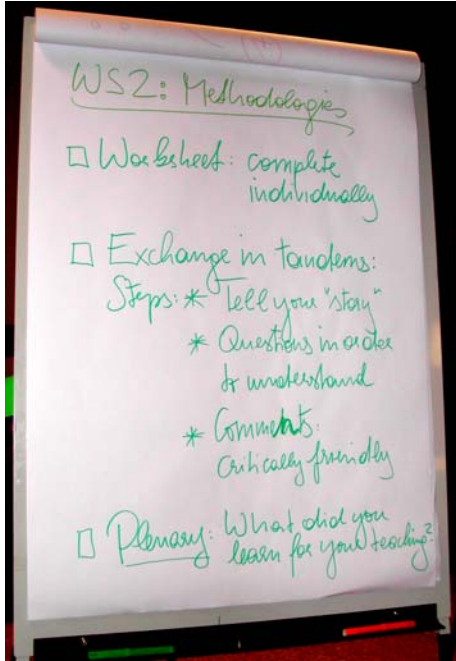 WS2: Methodologies
□ Worksheet: complete
individually
□ Exchange in tandems:
Steps: * Tell your "story"
* Questions in order
to understand
* Comments:
critically friendly
□ Plenary: What did you
learn for your teaching?